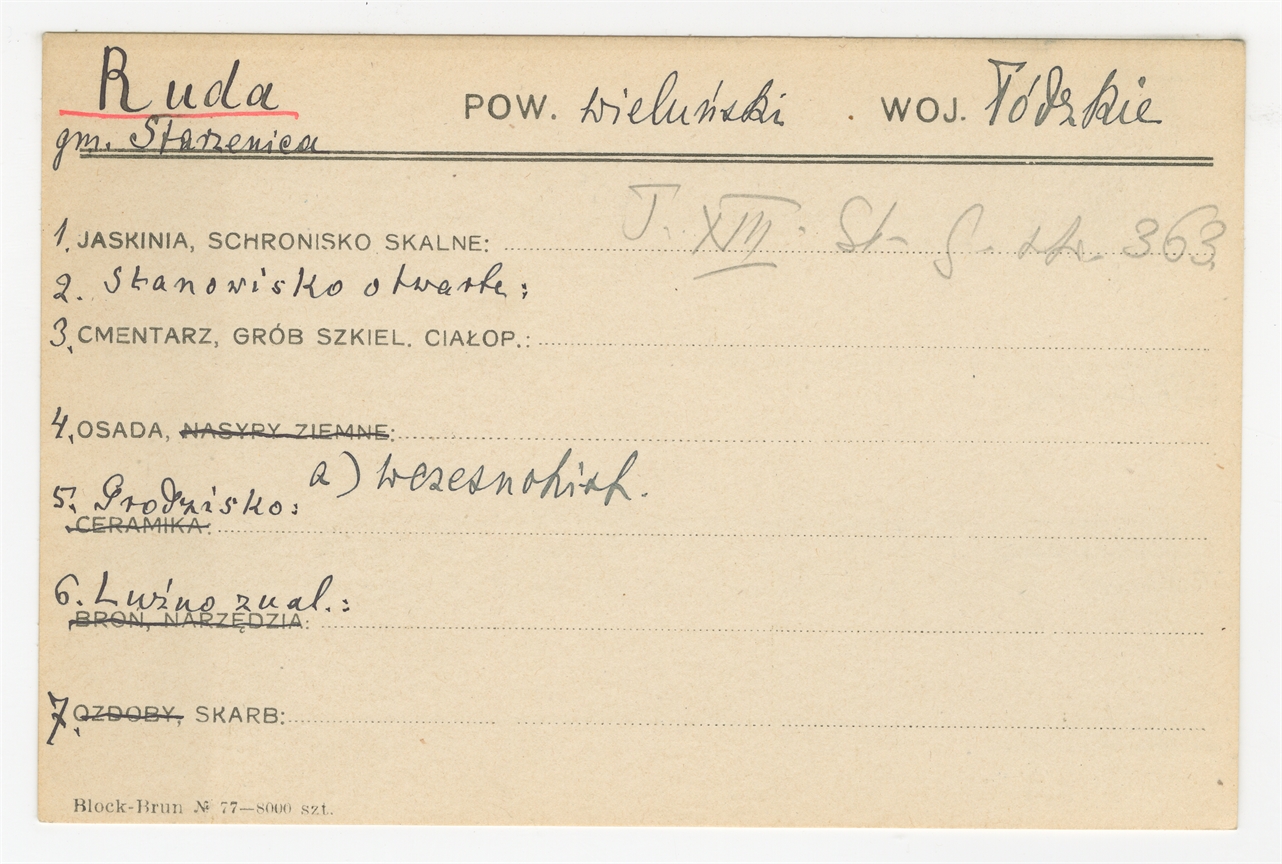 Ruda POW. wieluński . WOJ. Łódzkie
gm. Starzenica
T. XIII. St. G. str. 363
1. JASKINIA, SCHRONISKO SKALNE:
2. Stanowisko otwarte:
3. CMENTARZ, GRÓB SZKIEL. CIAŁOP.:
4. OSADA, NASYPY ZIEMNE:
5. Grodzisko: a) wczesnohist.
CERAMIKA:
6. Luźno znal.:
BROŃ, NARZĘDZIA:
7. OZDOBY, SKARB:
Block-Brun № 77—8000 szt.